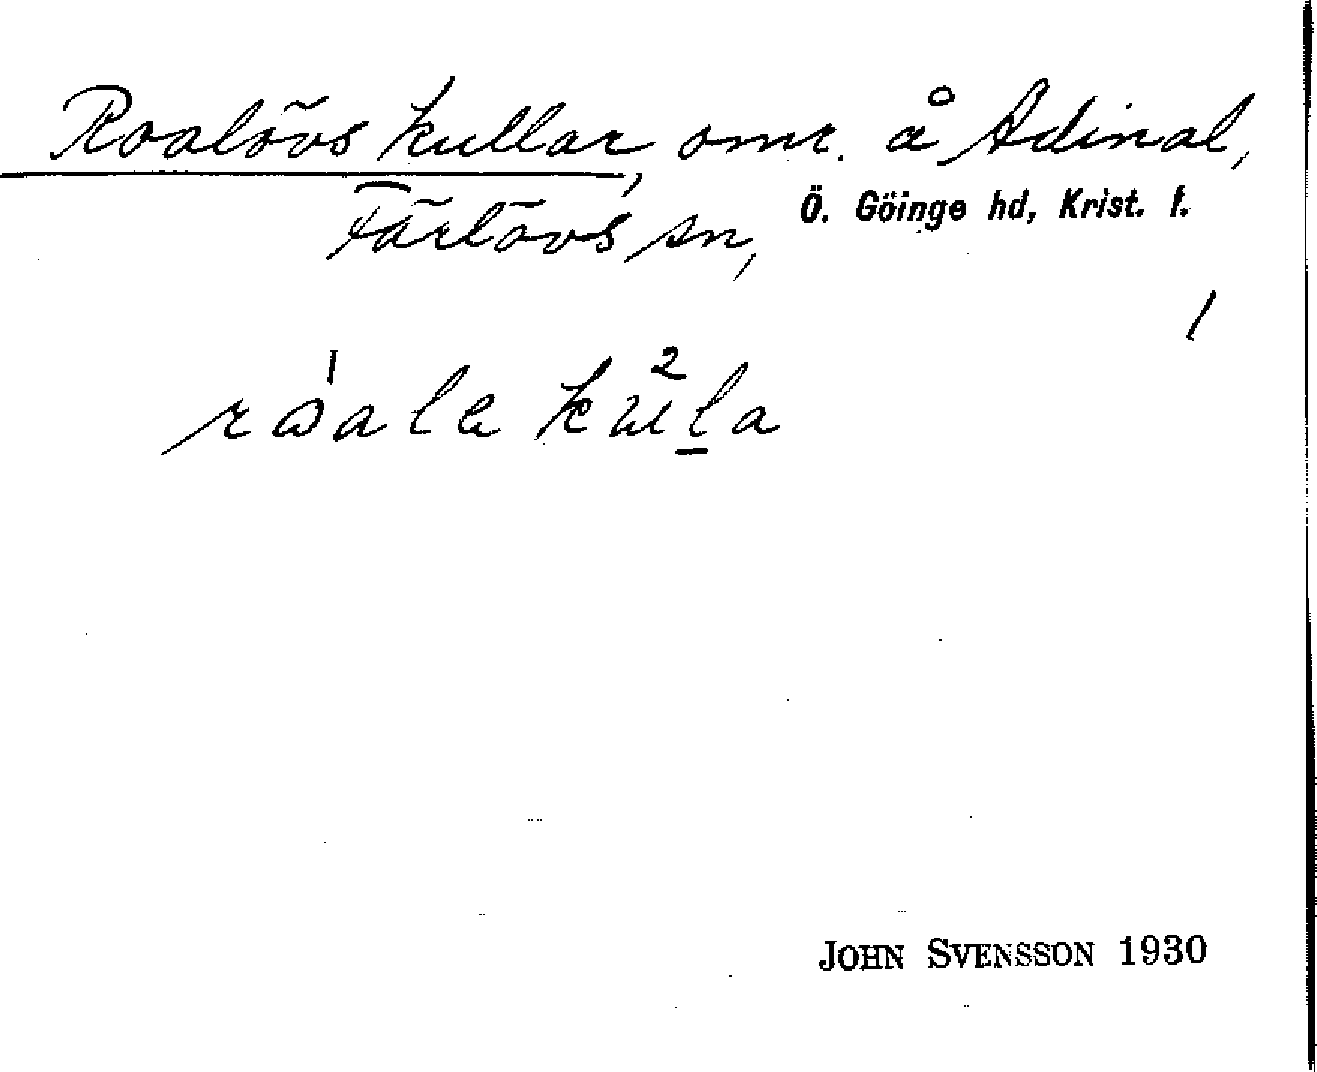 Roalövs kullar, omr. å Ådinal,
Färlövs sn, Ö. Göinge hd, Krist. l.
/
kullar
JOHN SVENSSON 1930